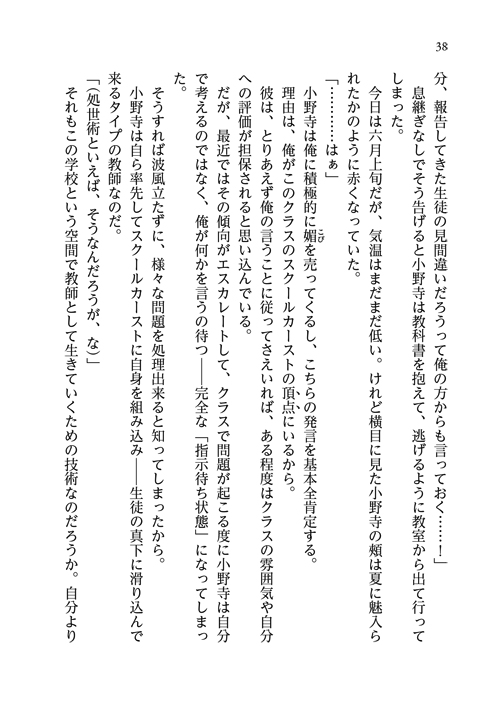 38
分、報告してきた生徒の見間違いだろうって俺の方からも言っておく……！」
　息継ぎなしでそう告げると小野寺は教科書を抱えて、逃げるように教室から出て行って
しまった。
　今日は六月上旬だが、気温はまだまだ低い。けれど横目に見た小野寺の頬は夏に魅入ら
れたかのように赤くなっていた。
「…………はぁ」
　小野寺は俺に積極的に媚こびを売ってくるし、こちらの発言を基本全肯定する。
　理由は、俺がこのクラスのスクールカーストの頂点にいるから。
　彼は、とりあえず俺の言うことに従ってさえいれば、ある程度はクラスの雰囲気や自分
への評価が担保されると思い込んでいる。
　だが、最近ではその傾向がエスカレートして、クラスで問題が起こる度に小野寺は自分
で考えるのではなく、俺が何かを言うの待つ――完全な「指示待ち状態」になってしまっ
た。
　そうすれば波風立たずに、様々な問題を処理出来ると知ってしまったから。
　小野寺は自ら率先してスクールカーストに自身を組み込み――生徒の真下に滑り込んで
来るタイプの教師なのだ。
「（処世術といえば、そうなんだろうが、な）」
　それもこの学校という空間で教師として生きていくための技術なのだろうか。自分より